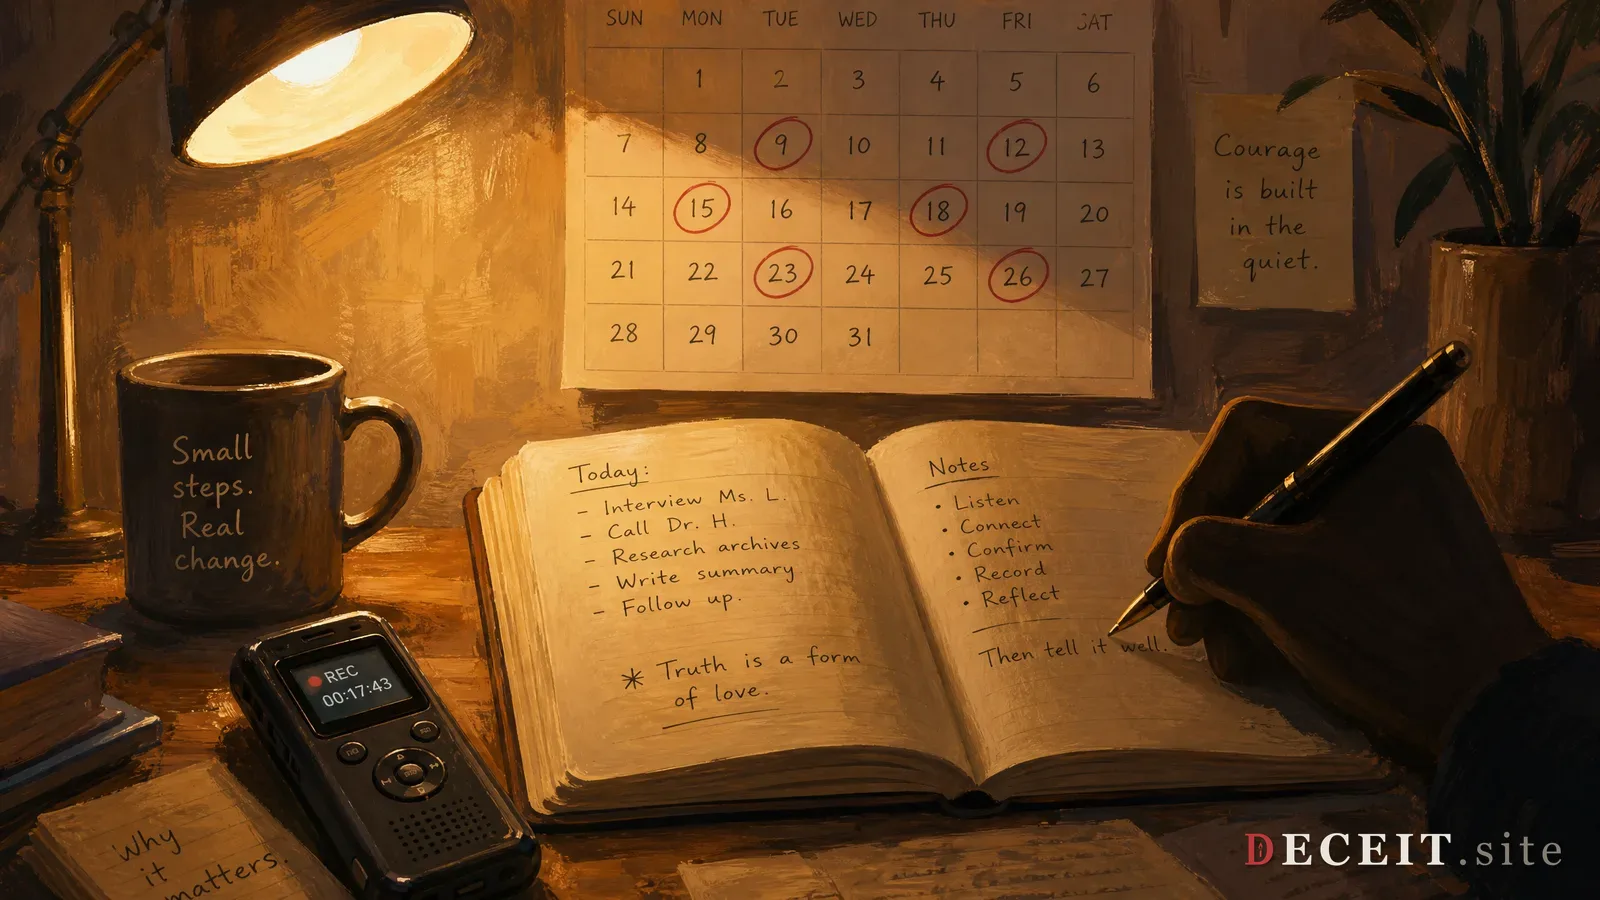 SUN MON TUE WED THU FRI SAT
1 2 3 4 5 6
7 8 9 10 11 12 13
14 15 16 17 18 19 20
21 22 23 24 25 26 27
28 29 30 31
Courage
is built
in the
quiet.
Small
steps.
Real
change.
Today:
- Interview Ms. L.
- Call Dr. H.
- Research archives
- Write summary
- Follow up.
* Truth is a form
of love.
Notes
• Listen
• Connect
• Confirm
• Record
• Reflect
Then tell it well.
REC
00:17:43
Why
it
matters.
DECEIT.site